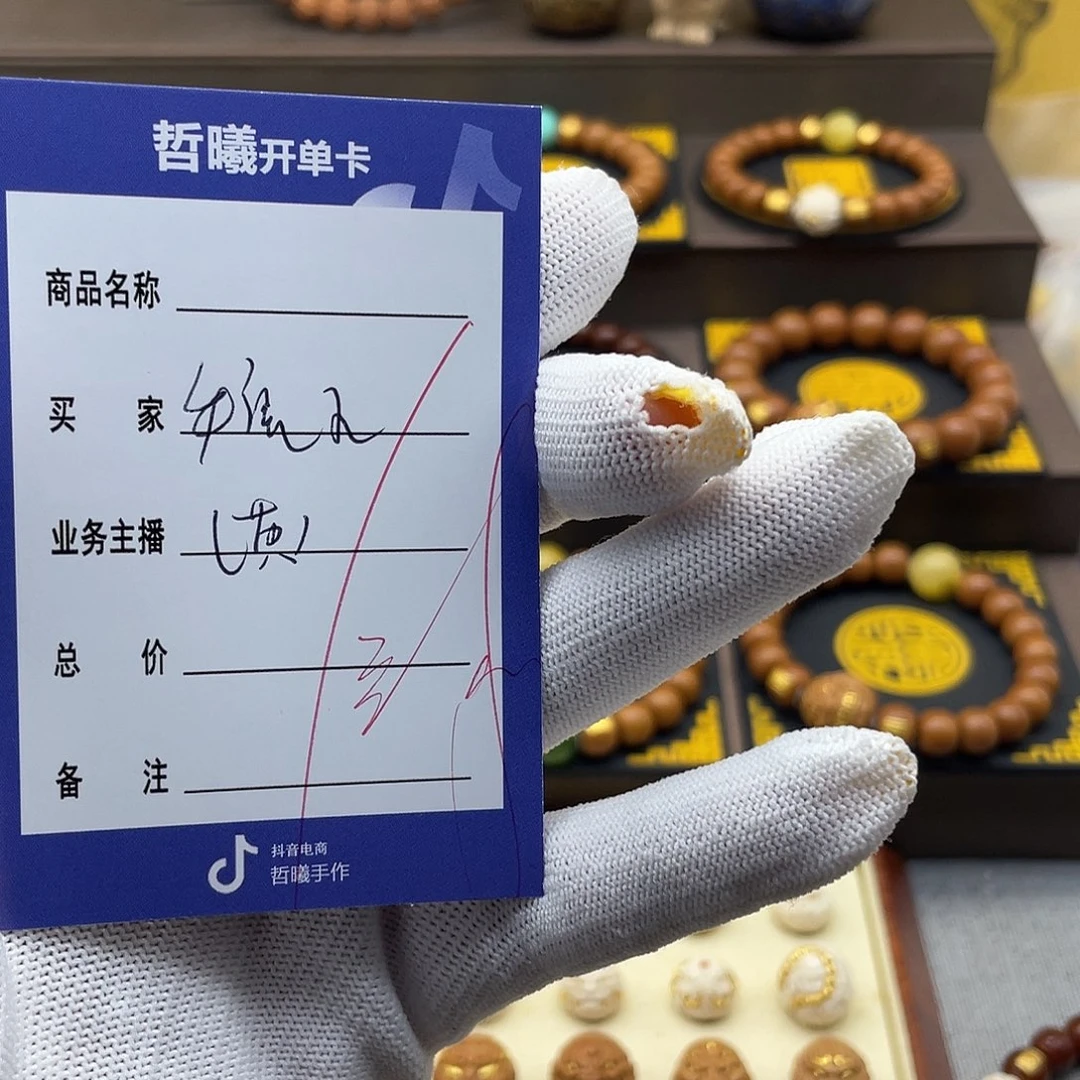 哲曦开单卡
商品名称
买 家
业务主播
总 价
备 注
抖音电商
哲曦手作